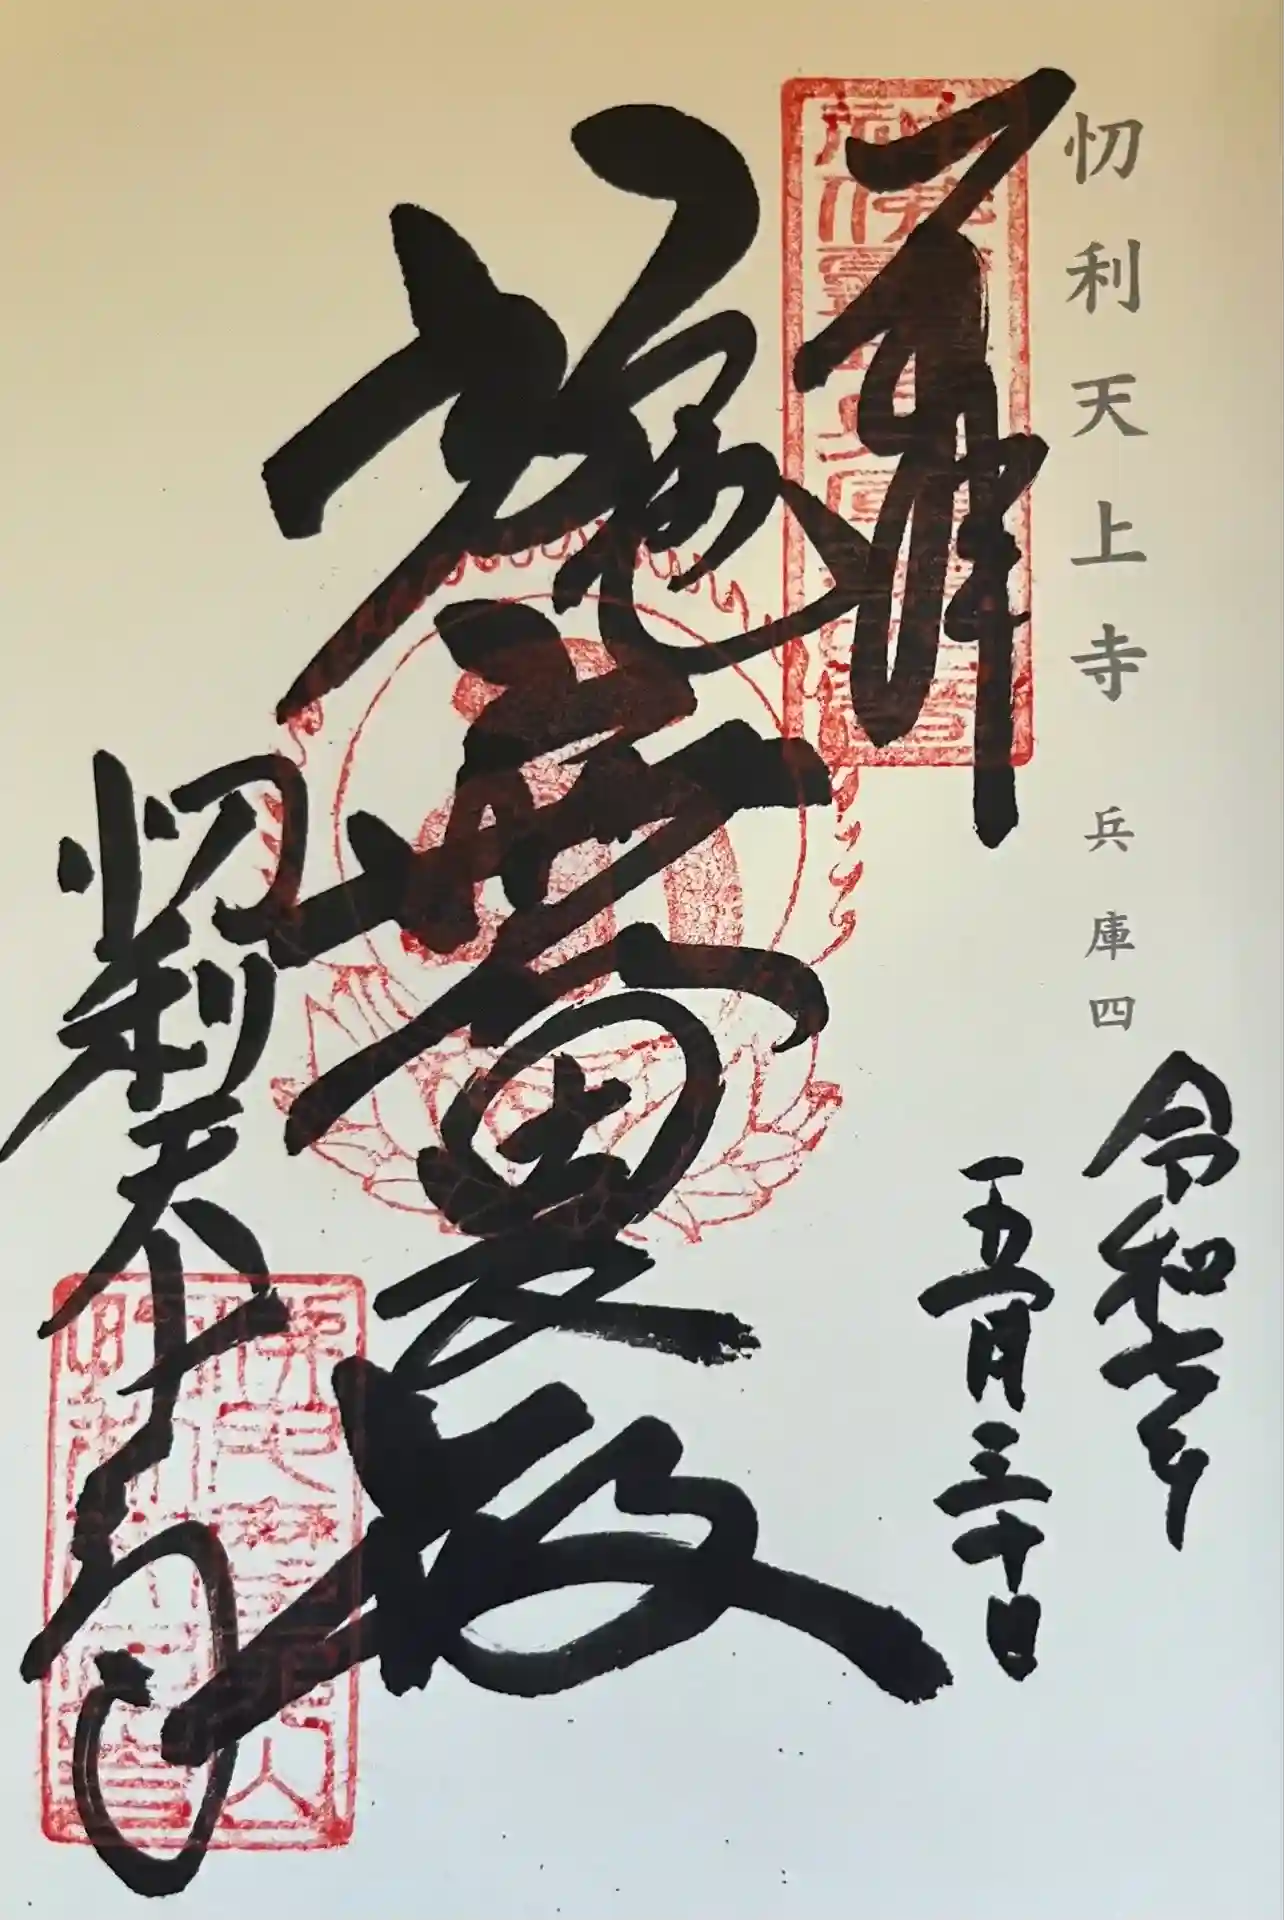 忉利天上寺 兵庫四
令和六年
五月三十日
奉拝
施無畏殿
忉利天上寺